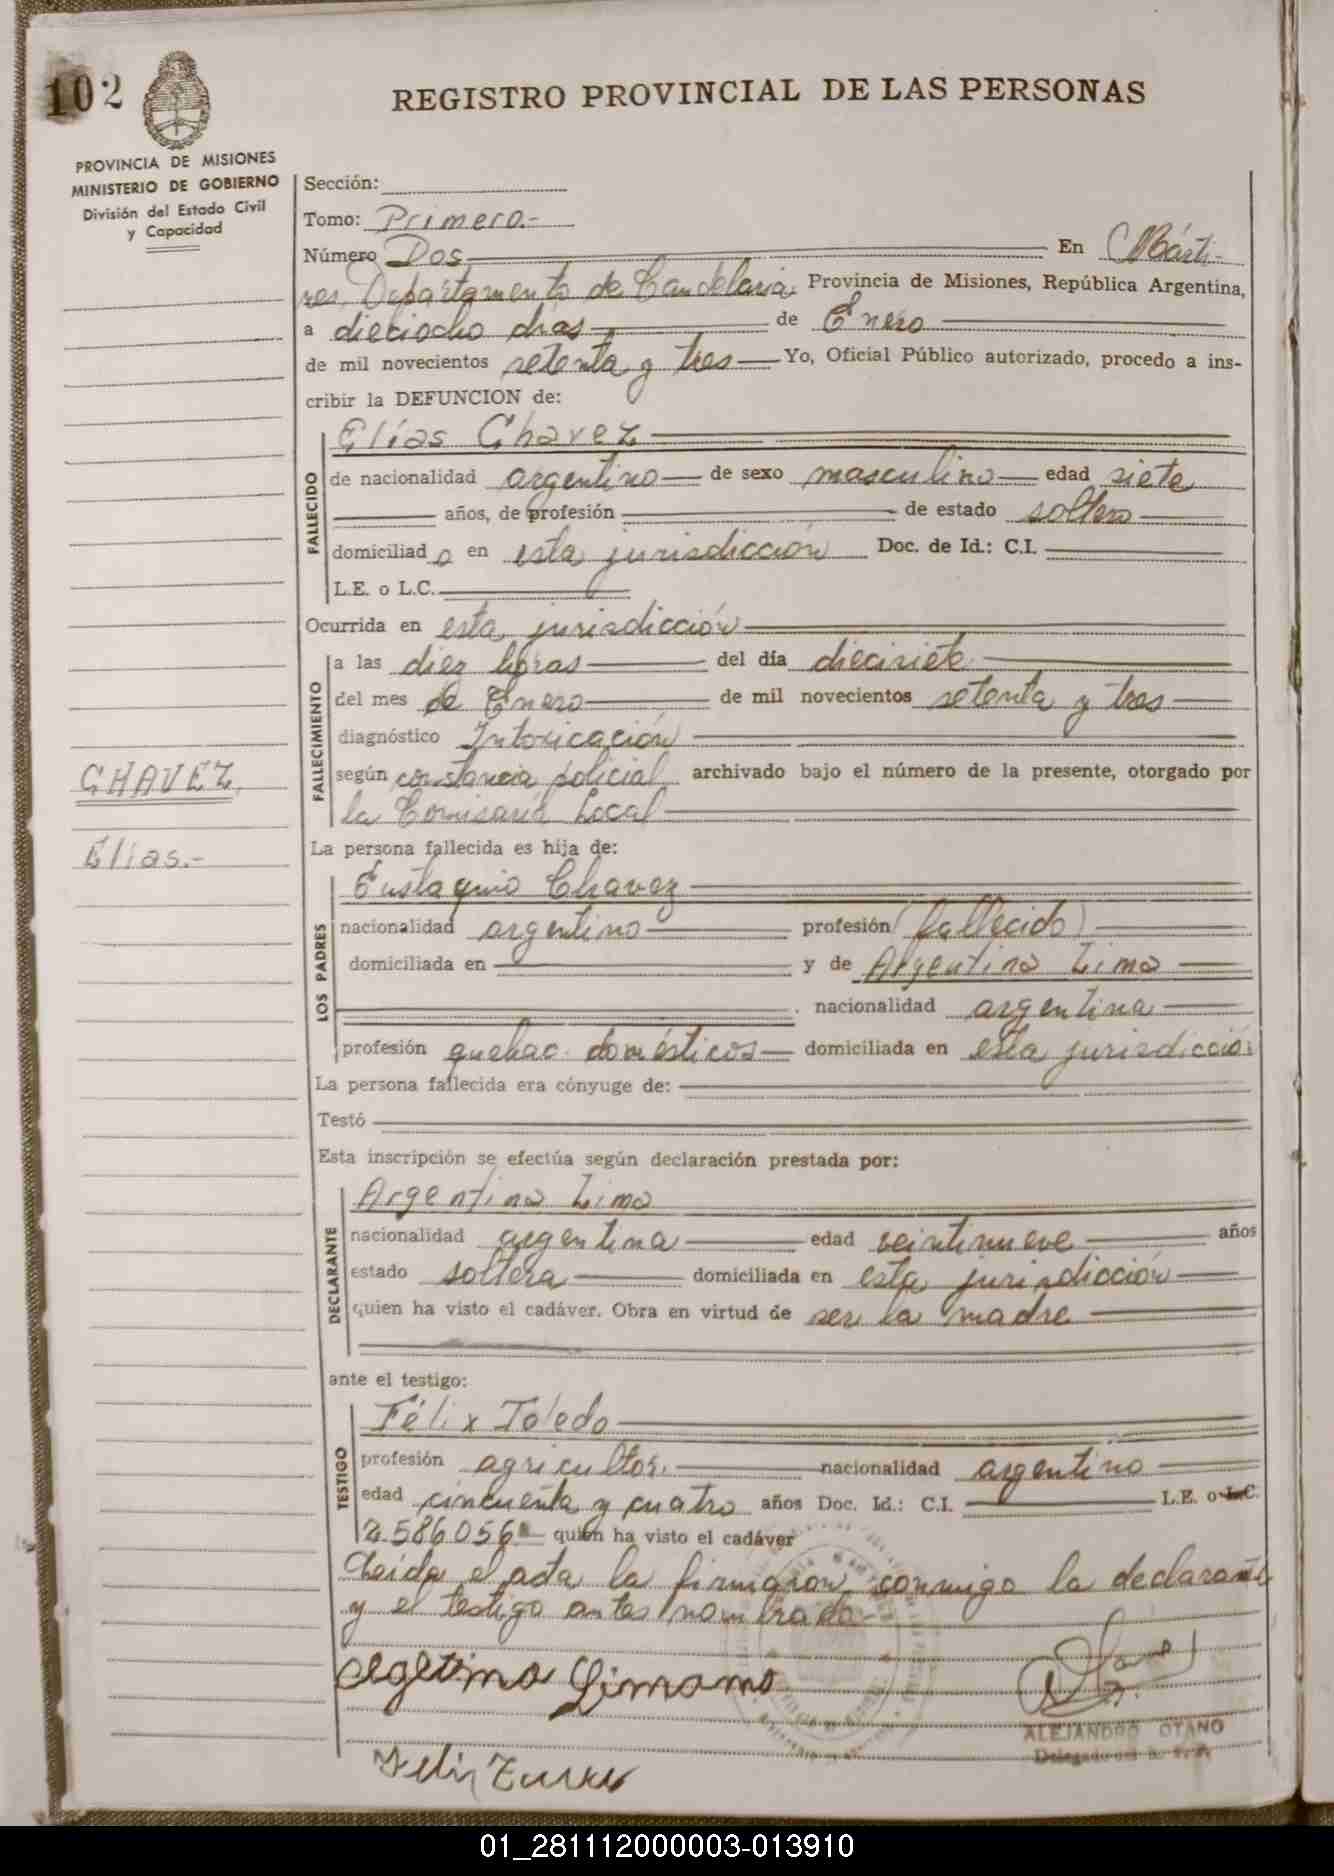 102
REGISTRO PROVINCIAL DE LAS PERSONAS
PROVINCIA DE MISIONES
MINISTERIO DE GOBIERNO
División del Estado Civil
y Capacidad
Sección:
Tomo: Primero.-
Número Dos En Márti-
res, Departamento de Candelaria. Provincia de Misiones, República Argentina,
a dieciocho días de Enero
de mil novecientos setenta y tres Yo, Oficial Público autorizado, procedo a ins-
cribir la DEFUNCION de:
FALLECIDO
Elías Chavez
de nacionalidad argentino de sexo masculino edad siete
años, de profesión de estado soltero
domiciliado en esta jurisdicción Doc. de Id.: C.I.
L.E. o L.C.
Ocurrida en esta jurisdicción
FALLECIMIENTO
a las diez horas del día diecisiete
del mes de Enero de mil novecientos setenta y tres
diagnóstico Intoxicación
según constancia policial archivado bajo el número de la presente, otorgado por
la Comisaría Local
CHAVEZ,
Elías.-
La persona fallecida es hija de:
LOS PADRES
Eustaquio Chavez
nacionalidad argentino profesión (fallecido)
domiciliada en y de Argentina Lima
nacionalidad argentina
profesión quehac. domésticos domiciliada en esta jurisdicción
La persona fallecida era cónyuge de:
Testó
Esta inscripción se efectúa según declaración prestada por:
DECLARANTE
Argentina Lima
nacionalidad argentina edad veintinueve años
estado soltera domiciliada en esta jurisdicción
quien ha visto el cadáver. Obra en virtud de ser la madre
ante el testigo:
TESTIGO
Félix Toledo
profesión agricultor. nacionalidad argentino
edad cincuenta y cuatro años Doc. Id.: C.I. L.E. o L.C.
2.586.056 quien ha visto el cadáver
Leída el acta la firmaron conmigo la declarante
y el testigo antes nombrado.-
ALEJANDRO OTANO
01_281112000003-013910